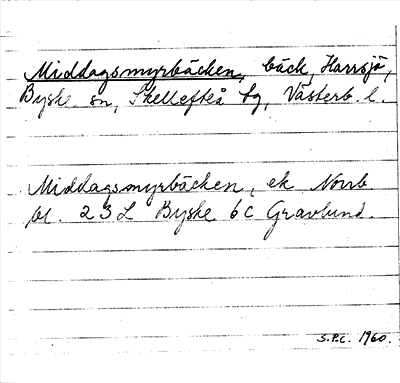 Middagsmyrbäcken, bäck, Harrsjö,
Byske sn, Skellefteå tg, Västerb. l.
Middagsmyrbäcken, ek Norrb
bl. 23 L Byske 6C Gravlund.
S.P.C. 1960.